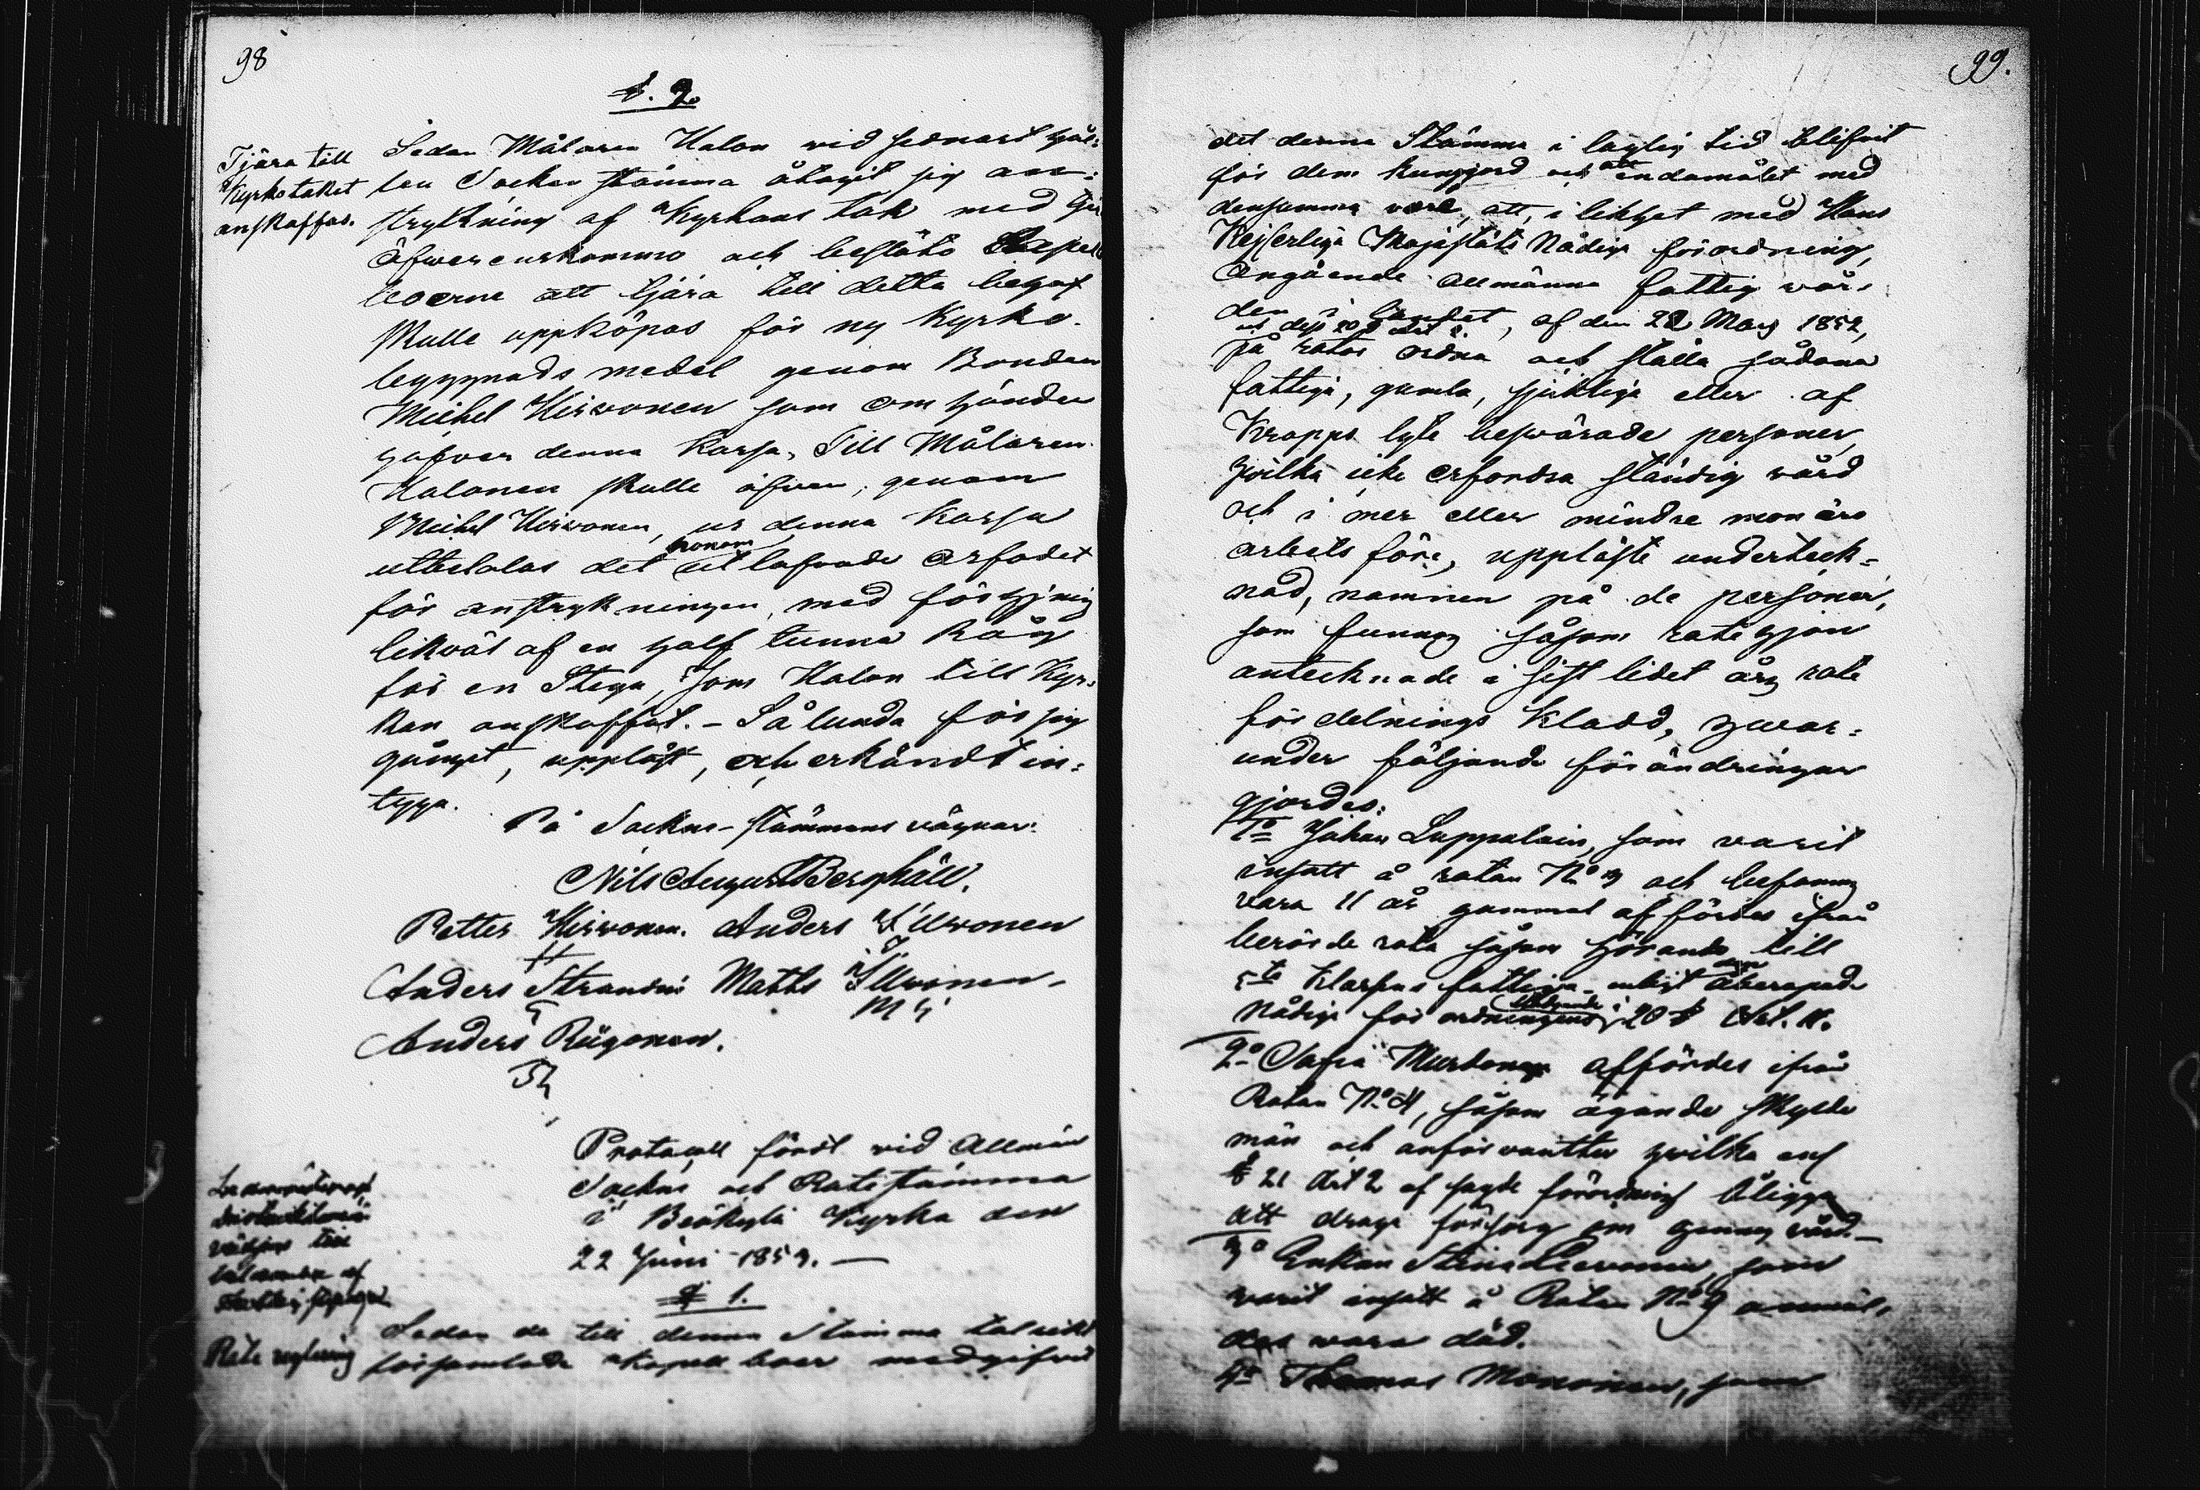 98
§. 2.
Tjära till
Kyrkotaket
anskaffas.
Sedan Målaren Halon vid sednast hål-
len Sockne stämma åtagit sig an-
strykning af Kyrkans tak med
öfverenskommo och beslöto
boerne att tjära till detta behof
skulle uppköpas för ny Kyrko-
byggnads medel genom Bonden
Michel Hirvonen som om händer
hafver denna Kassa, Till Målaren
Halonen skulle äfven, genom
Michel Hirvonen, ur denna Kassa
utbetalas det honom utlofvade arfvodet
för anstrykningen, med
likväl af en half tunna Råg
för en Stega, som Halon till Kyr-
kan anskaffat. – Sålunda för sig
gånget, uppläst, och erkändt in-
tyga.
På Sockne-stämmans vägnar:
Nils August Berghäll.
Petter Hirvonen. Anders Illvonen
Anders Matts Illvonen
Anders Riigonen.
Protocoll fördt vid Allmän
Sockne och Rotestämma
i Kyrka den
22 Juni 1853. —
§ 1.
Rote reglering
Sedan de till denna Stämma talrikt
församlade Kapell boer medgifvit
99.
det denna Stämma i laglig tid blifvit
för dem kungjord och att ändamålet med
densamma vore, att, i likhet med Hans
Kejserliga Majestäts Nådiga förordning,
angående allmänna fattig vår-
den i landet, af den 22 Mars 1852,
på rotor ordna och ställa sådana
fattiga, gamla, sjukliga eller af
Kropps lyte besvärade personer,
hvilka icke erfordra ständig vård
och i mer eller mindre mon äro
arbets föra, uppläste underteck-
nad, namnen på de personer,
som funnos såsom rotehjon
antecknade i sist lidet års rote
fördelnings Kladd, hvar-
under följande förändringar
gjordes:
1o Johan Luppolain, som varit
insatt å rotan No 3 och befanns
vara 11 år gammal affördes ifrån
berörde rota såsom hörande till
Klassens fattiga enligt åberopade
Nådiga förordningens 20 § Art.
2o Sofia Murtonen affördes ifrån
Rotan No 4, såsom ägande skylde
män och anförvantter hvilka enl
§ 21 Art 2 af sagde förordning åligger
att draga försorg om hennes vård. –
3o Enkan Stina som
varit insatt å Rotan No 9 anmäl-
des vara död.
4o Thomas Mononen, som